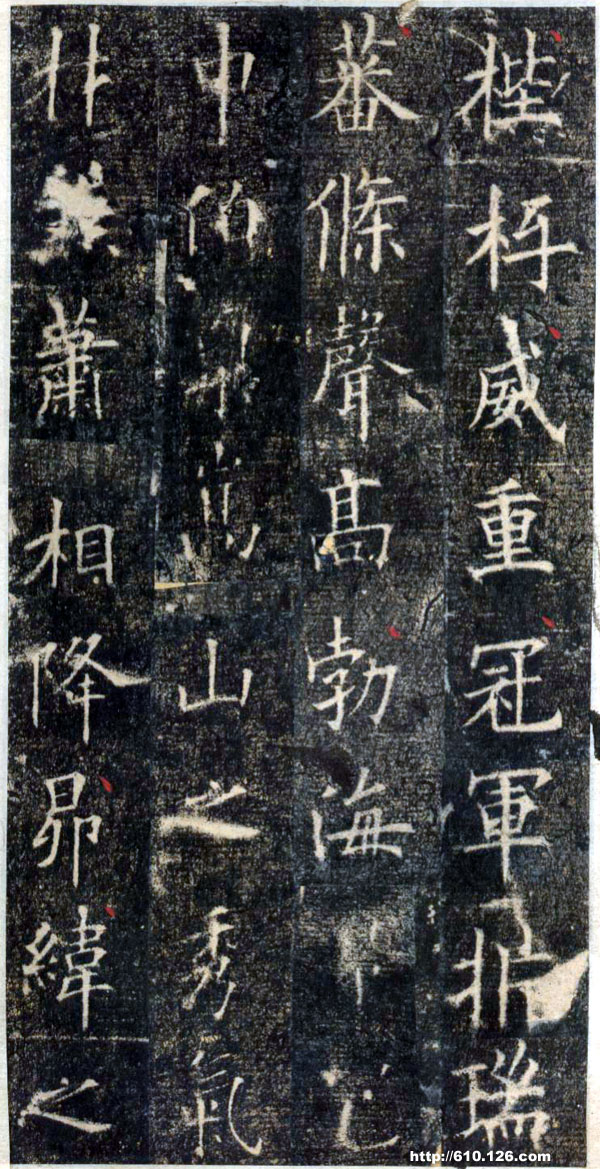 梐枑威重冠軍瑞
蕃條聲高勃海
申伯嵩山之秀氣
材蕭相降昴緯之
http://610.126.com